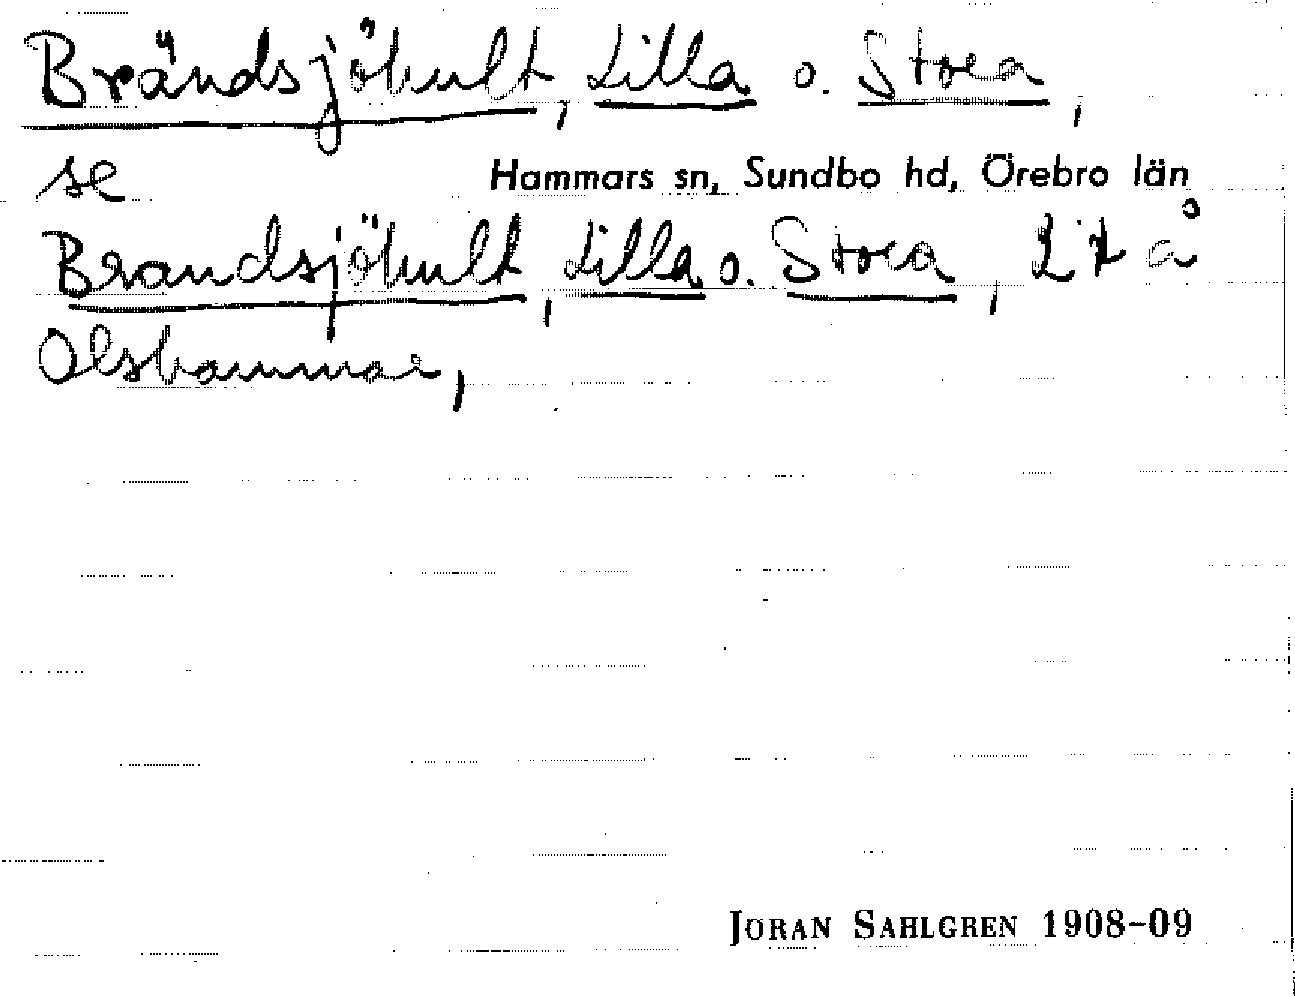 Brändsjöhult, Lilla o. Stora,
se
Hammars sn, Sundbo hd, Örebro län
Brandsjöhult, Lilla o. Stora, 2 it å
Olshammar,
JÖRAN SAHLGREN 1908-09